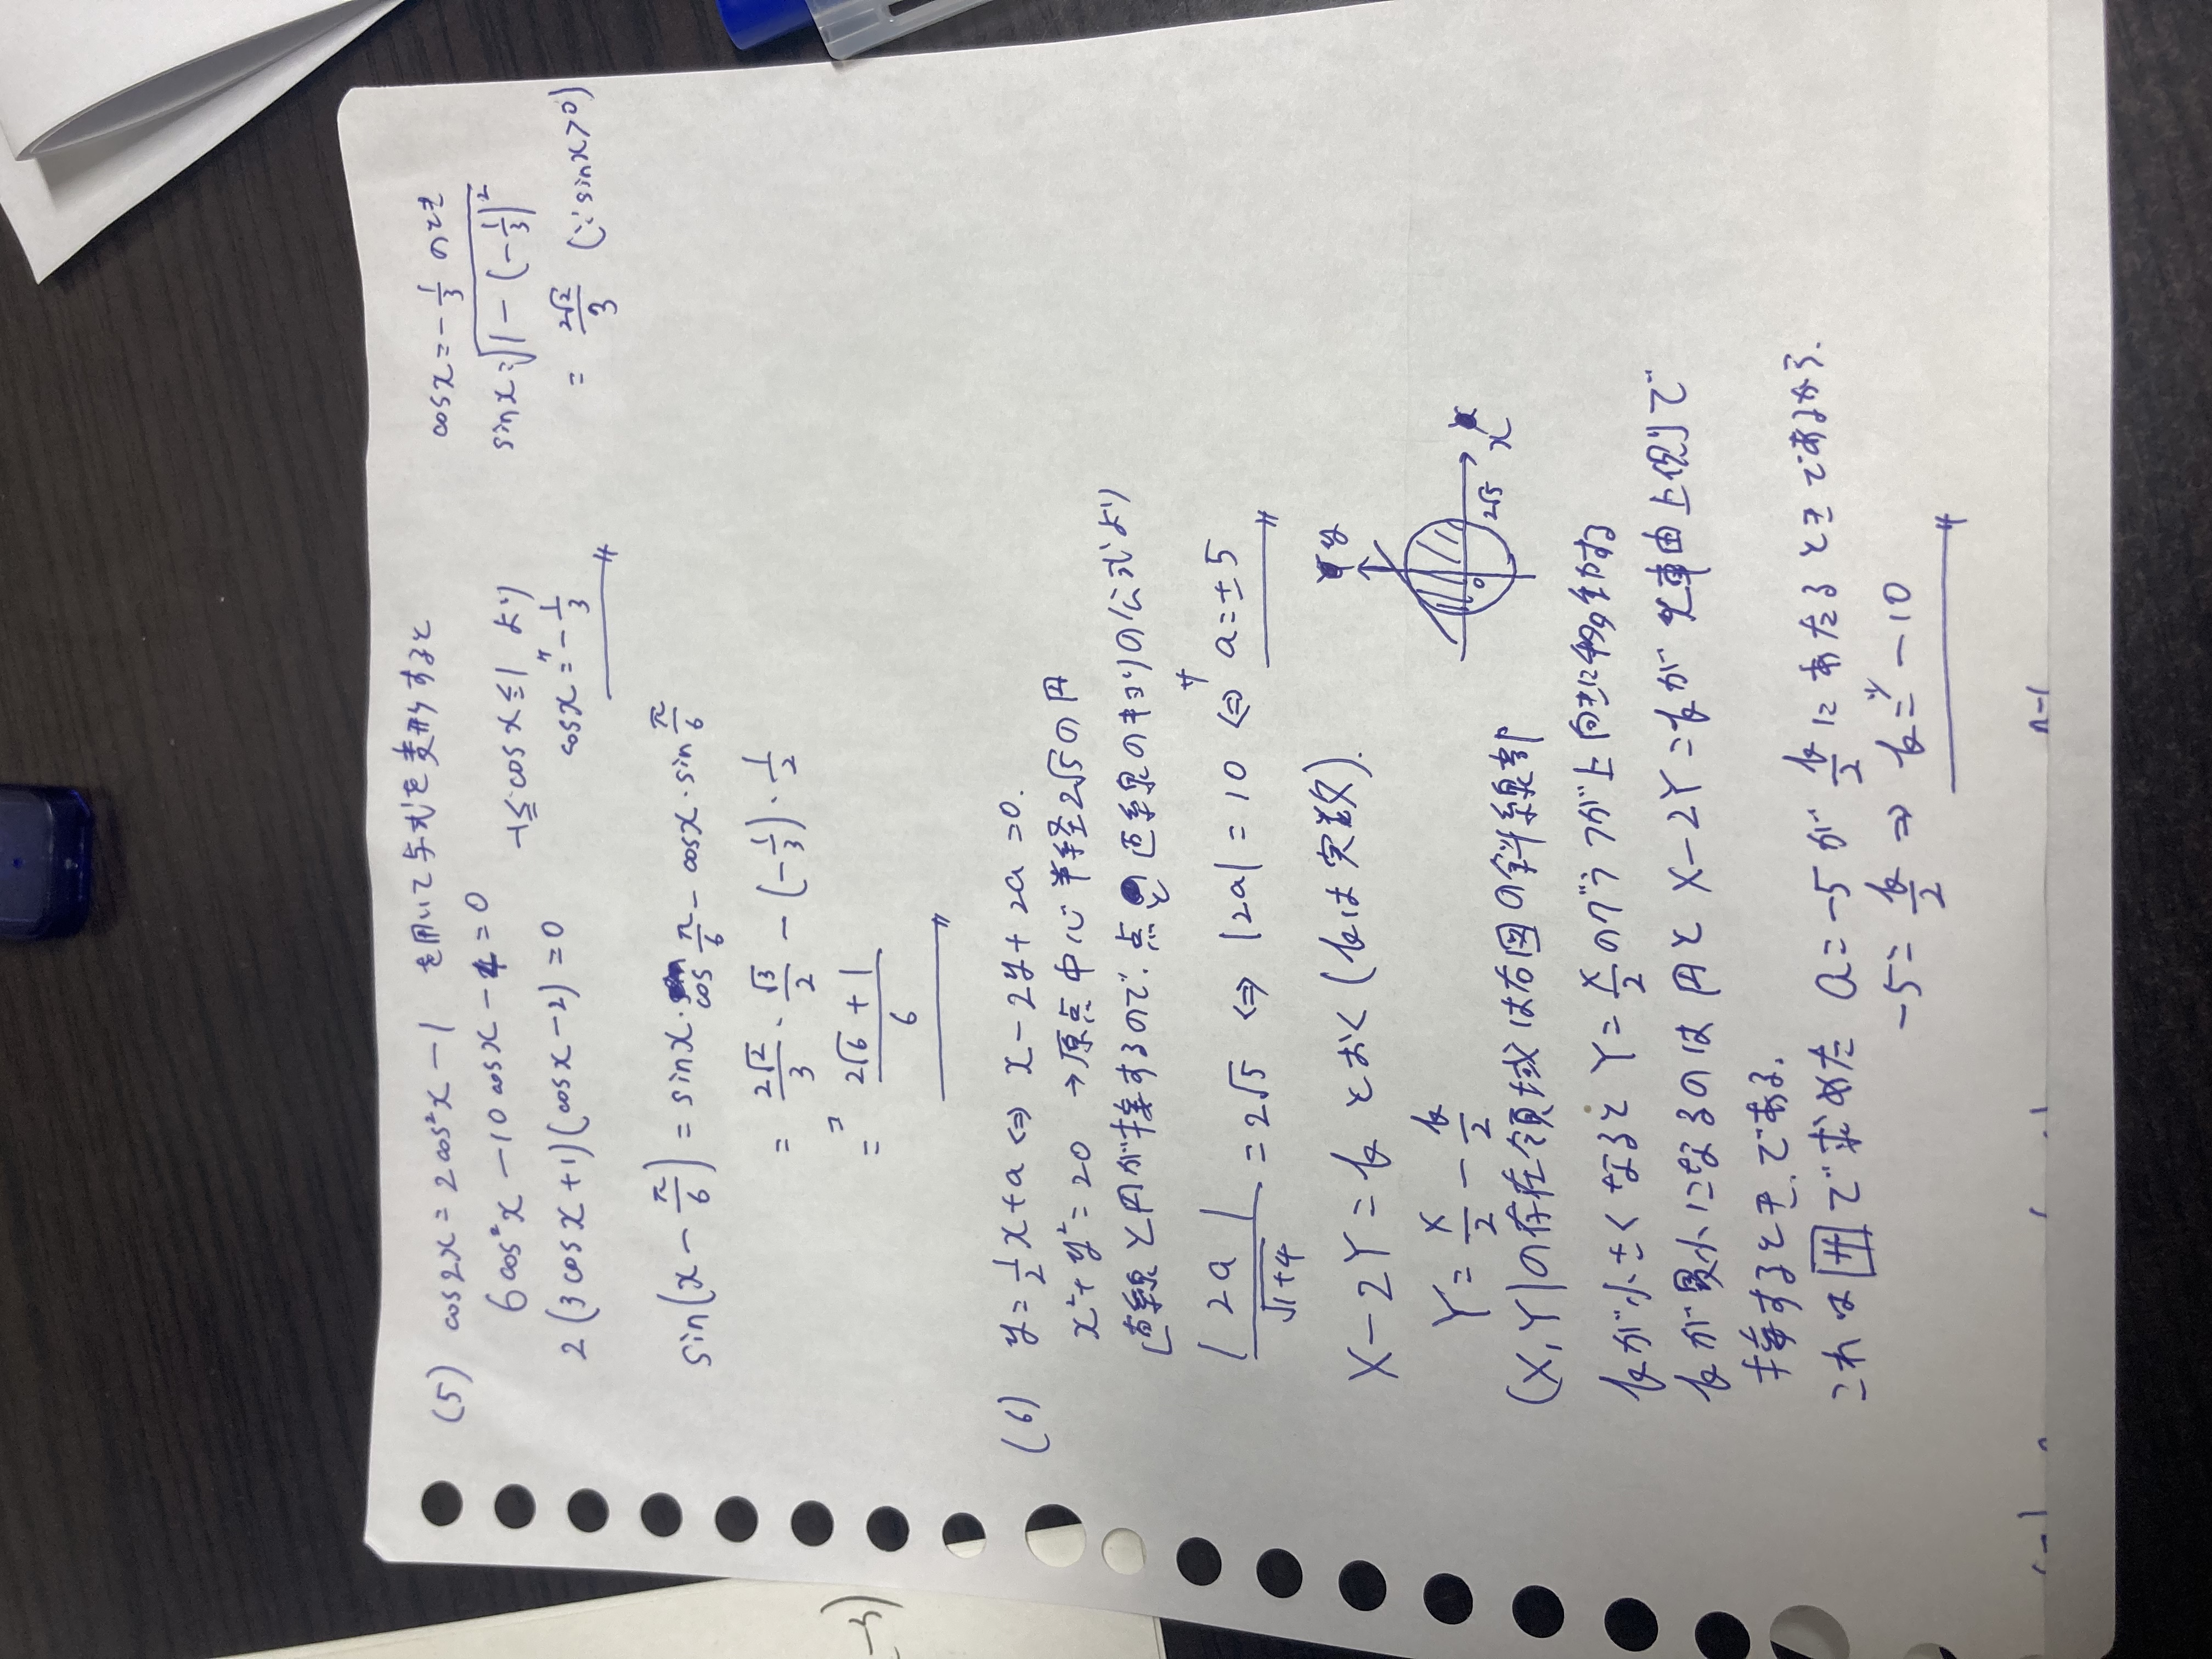 (5) cos2x = 2cos²x − 1 を用いて与式を変形すると
6cos²x − 10cosx − 4 = 0
2(3cosx+1)(cosx−2) = 0
−1≦cosx≦1 より
cosx = −1/3
cosx = −1/3 のとき
sinx = √(1−(−1/3)²)
= 2√2/3 (∵sinx>0)
sin(x − π/6) = sinx・cosπ/6 − cosx・sinπ/6
= 2√2/3・√3/2 − (−1/3)・1/2
= (2√6+1)/6
(6) y = 1/2x + a ⇔ x − 2y + 2a = 0.
x²+y² = 20 → 原点中心半径2√5の円
直線と円が接するので、点と直線のキョリの公式より
|2a|/√(1+4) = 2√5 ⇔ |2a| = 10 ⇔ a = ±5
X − 2Y = k とおく (kは実数).
Y = X/2 − k/2
y
0
2√5
x
(X,Y)の存在領域は右図の斜線部
kが小さくなると Y = X/2 のグラフが上向きに移動する
kが最小になるのは円と X−2Y=k が x軸上側で
接するとき.である.
これは 井 で求めた a=−5 が k/2 にあたるときであるから.
−5 = k/2 ⇒ k = −10
n−1
−3)